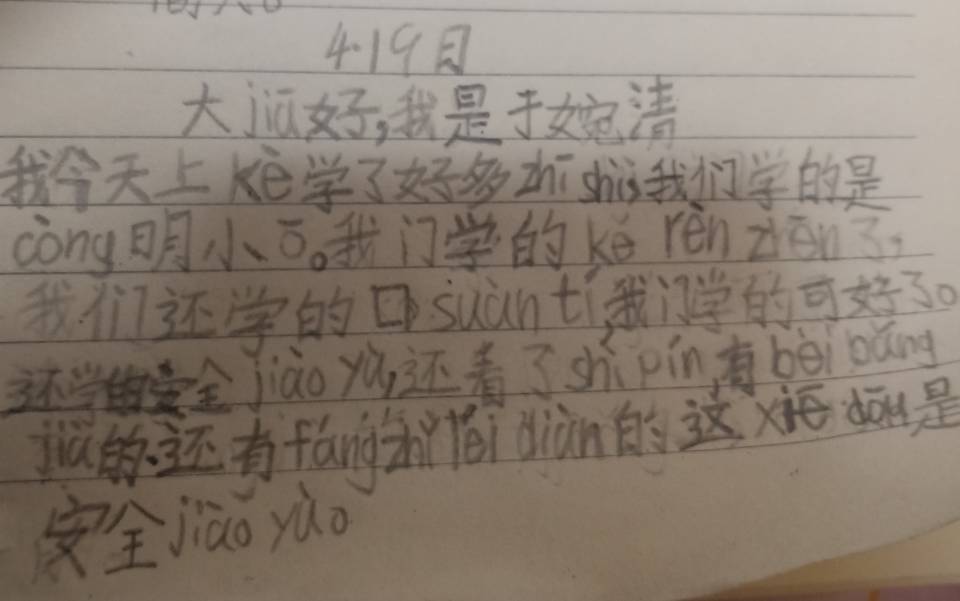 4.19日
大jiā好,我是于婉清
我今天上kè学了好多zhī shi,我们学的是
cōng明小ō。我门学的kě rèn zhēn了,
我们还学的口suàn tí,我门学的可好了。
还学的安全jiào yù,还看了shì pín,有bèi bǎng
jià的.还有fáng zhǐ léi diàn的这xiē dōu是
安全jiào yù。